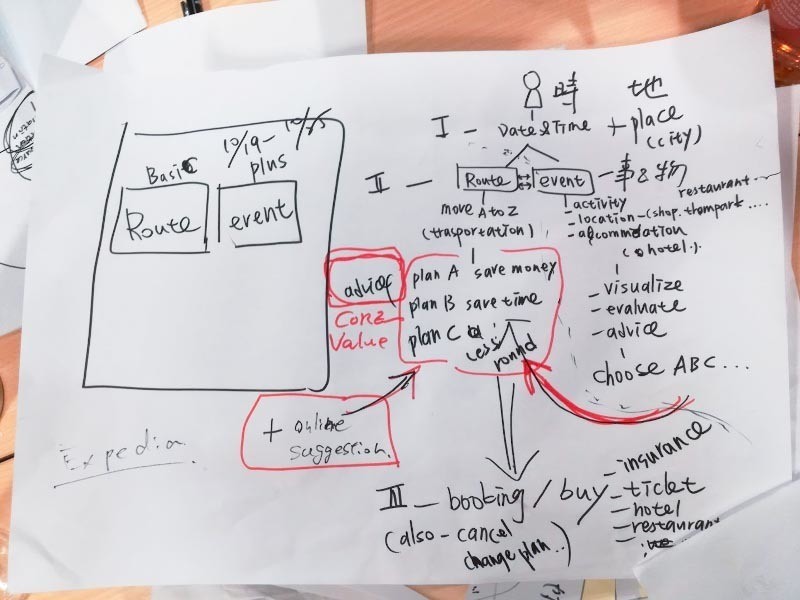 Basic
10/19-10/25
plus
Route
event
時
地
I - Date & Time + place
(city)
II - Route ↔ event - 事&物
move A to Z
(trasportation)
- activity
restaurant
- location - (shop.
....
(hotel.).
advice
Core
Value
plan A save money
plan B save time
plan C
less
round
- visualize
- evaluate
- advice
choose ABC...
+ online
suggestion.
Expedia
III - booking / buy
(also - cancel
change plan..)
- insurance
- ticket
- hotel
- restaurant